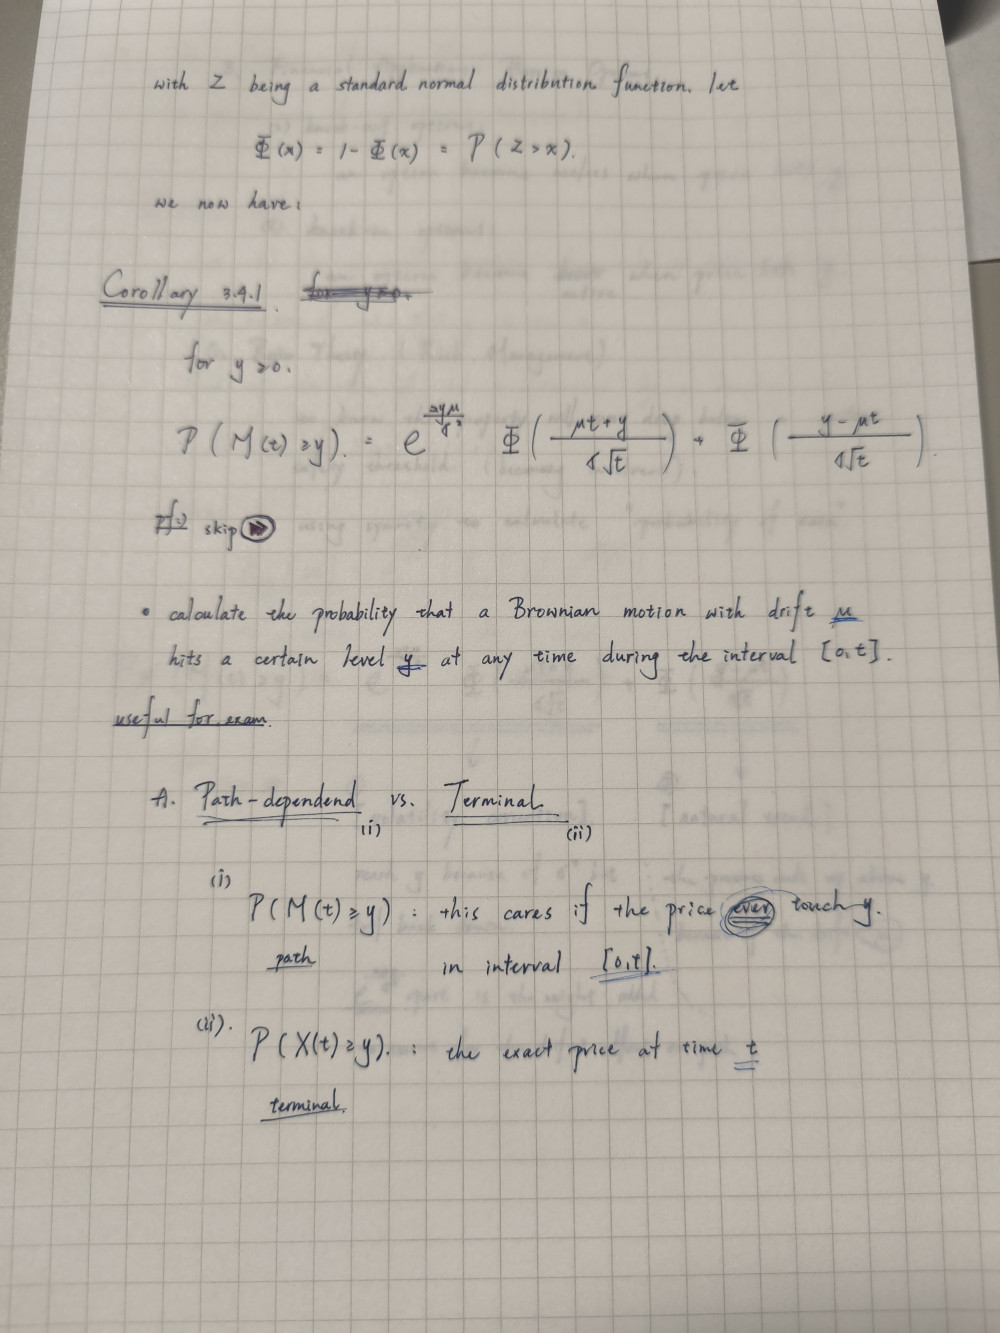 with Z being a standard normal distribution function. let
Φ(x) = 1- Φ(x) = P(Z > x).
we now have:
Corollary 3.4.1.
for y ≥0.
P(M(t) ≥y). = e^{2yμ/σ²} Φ(μt+y / σ√t) + Φ(y-μt / σ√t).
skip
• calculate the probability that a Brownian motion with drift μ
hits a certain level y at any time during the interval [0,t].
useful for exam.
A. Path-dependend (i) vs. Terminal (ii)
(i) P(M(t) ≥y) : this cares if the price ever touch y.
path in interval [0,t].
(ii). P(X(t) ≥y). : the exact price at time t
terminal.